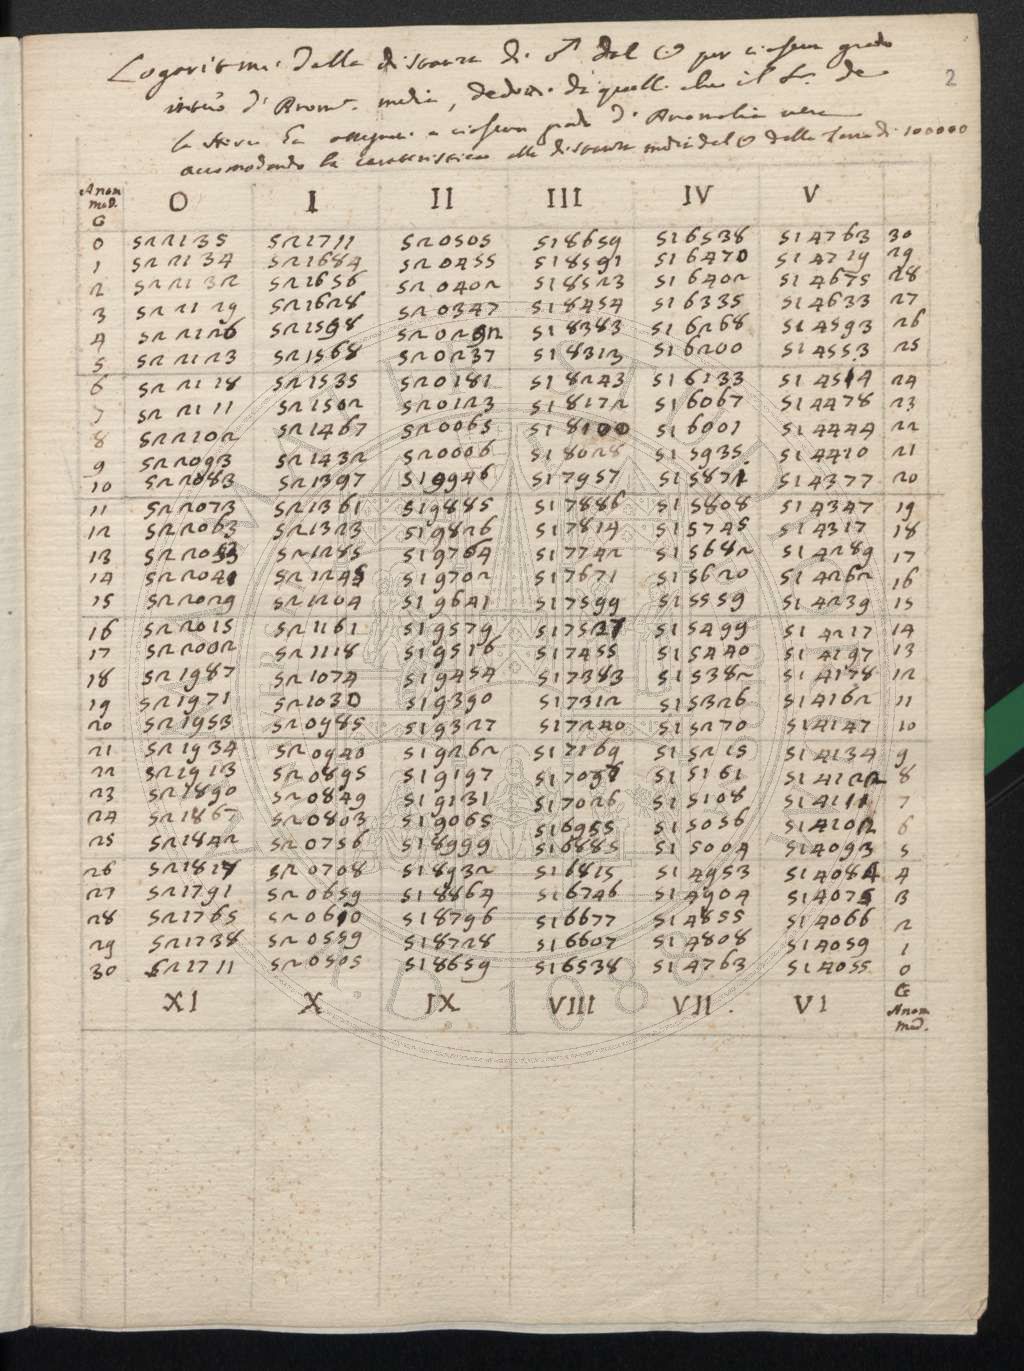 Logaritmi della distanza di ♂ dal ☉ per ciascun grado
intero d' Anom. media, dedotti da quelli che il Sr. de
la Hire ha a ciascun grado di Anomalia vera
accomodando la caratteristica alla distanza media del ☉ dalla Terra di 100000
2
Anom med. G O I II III IV V
0 522135 521711 520505 518659 516538 514763 30
1 522134 521684 520455 518591 516470 514719 29
2 522132 521656 520402 518523 516402 514675 28
3 522129 521628 520347 518454 516335 514633 27
4 522126 521598 520292 518383 516268 514593 26
5 522123 521568 520237 518313 516200 514553 25
6 522118 521535 520181 518243 516133 514514 24
7 522111 521502 520123 518172 516067 514478 23
8 522102 521467 520065 518100 516001 514444 22
9 522093 521432 520006 518028 515935 514410 21
10 522083 521397 519946 517957 515871 514377 20
11 522073 521361 519885 517886 515808 514347 19
12 522063 521323 519826 517814 515745 514317 18
13 522053 521285 519764 517742 515682 514289 17
14 522041 521245 519702 517671 515620 514262 16
15 522029 521204 519641 517599 515559 514239 15
16 522015 521161 519579 517527 515499 514217 14
17 522002 521118 519516 517455 515440 514197 13
18 521987 521074 519454 517383 515382 514178 12
19 521971 521030 519390 517312 515326 514162 11
20 521953 520985 519327 517240 515270 514147 10
21 521934 520940 519262 517169 515215 514134 9
22 521913 520895 519197 517098 515161 514122 8
23 521890 520849 519131 517026 515108 514111 7
24 521867 520803 519065 516955 515056 514102 6
25 521842 520756 518999 516885 515004 514093 5
26 521817 520708 518932 516815 514953 514084 4
27 521791 520659 518864 516746 514904 514075 3
28 521765 520610 518796 516677 514855 514066 2
29 521738 520559 518728 516607 514808 514059 1
30 521711 520505 518659 516538 514763 514055 0
XI X IX VIII VII. VI G Anom med.